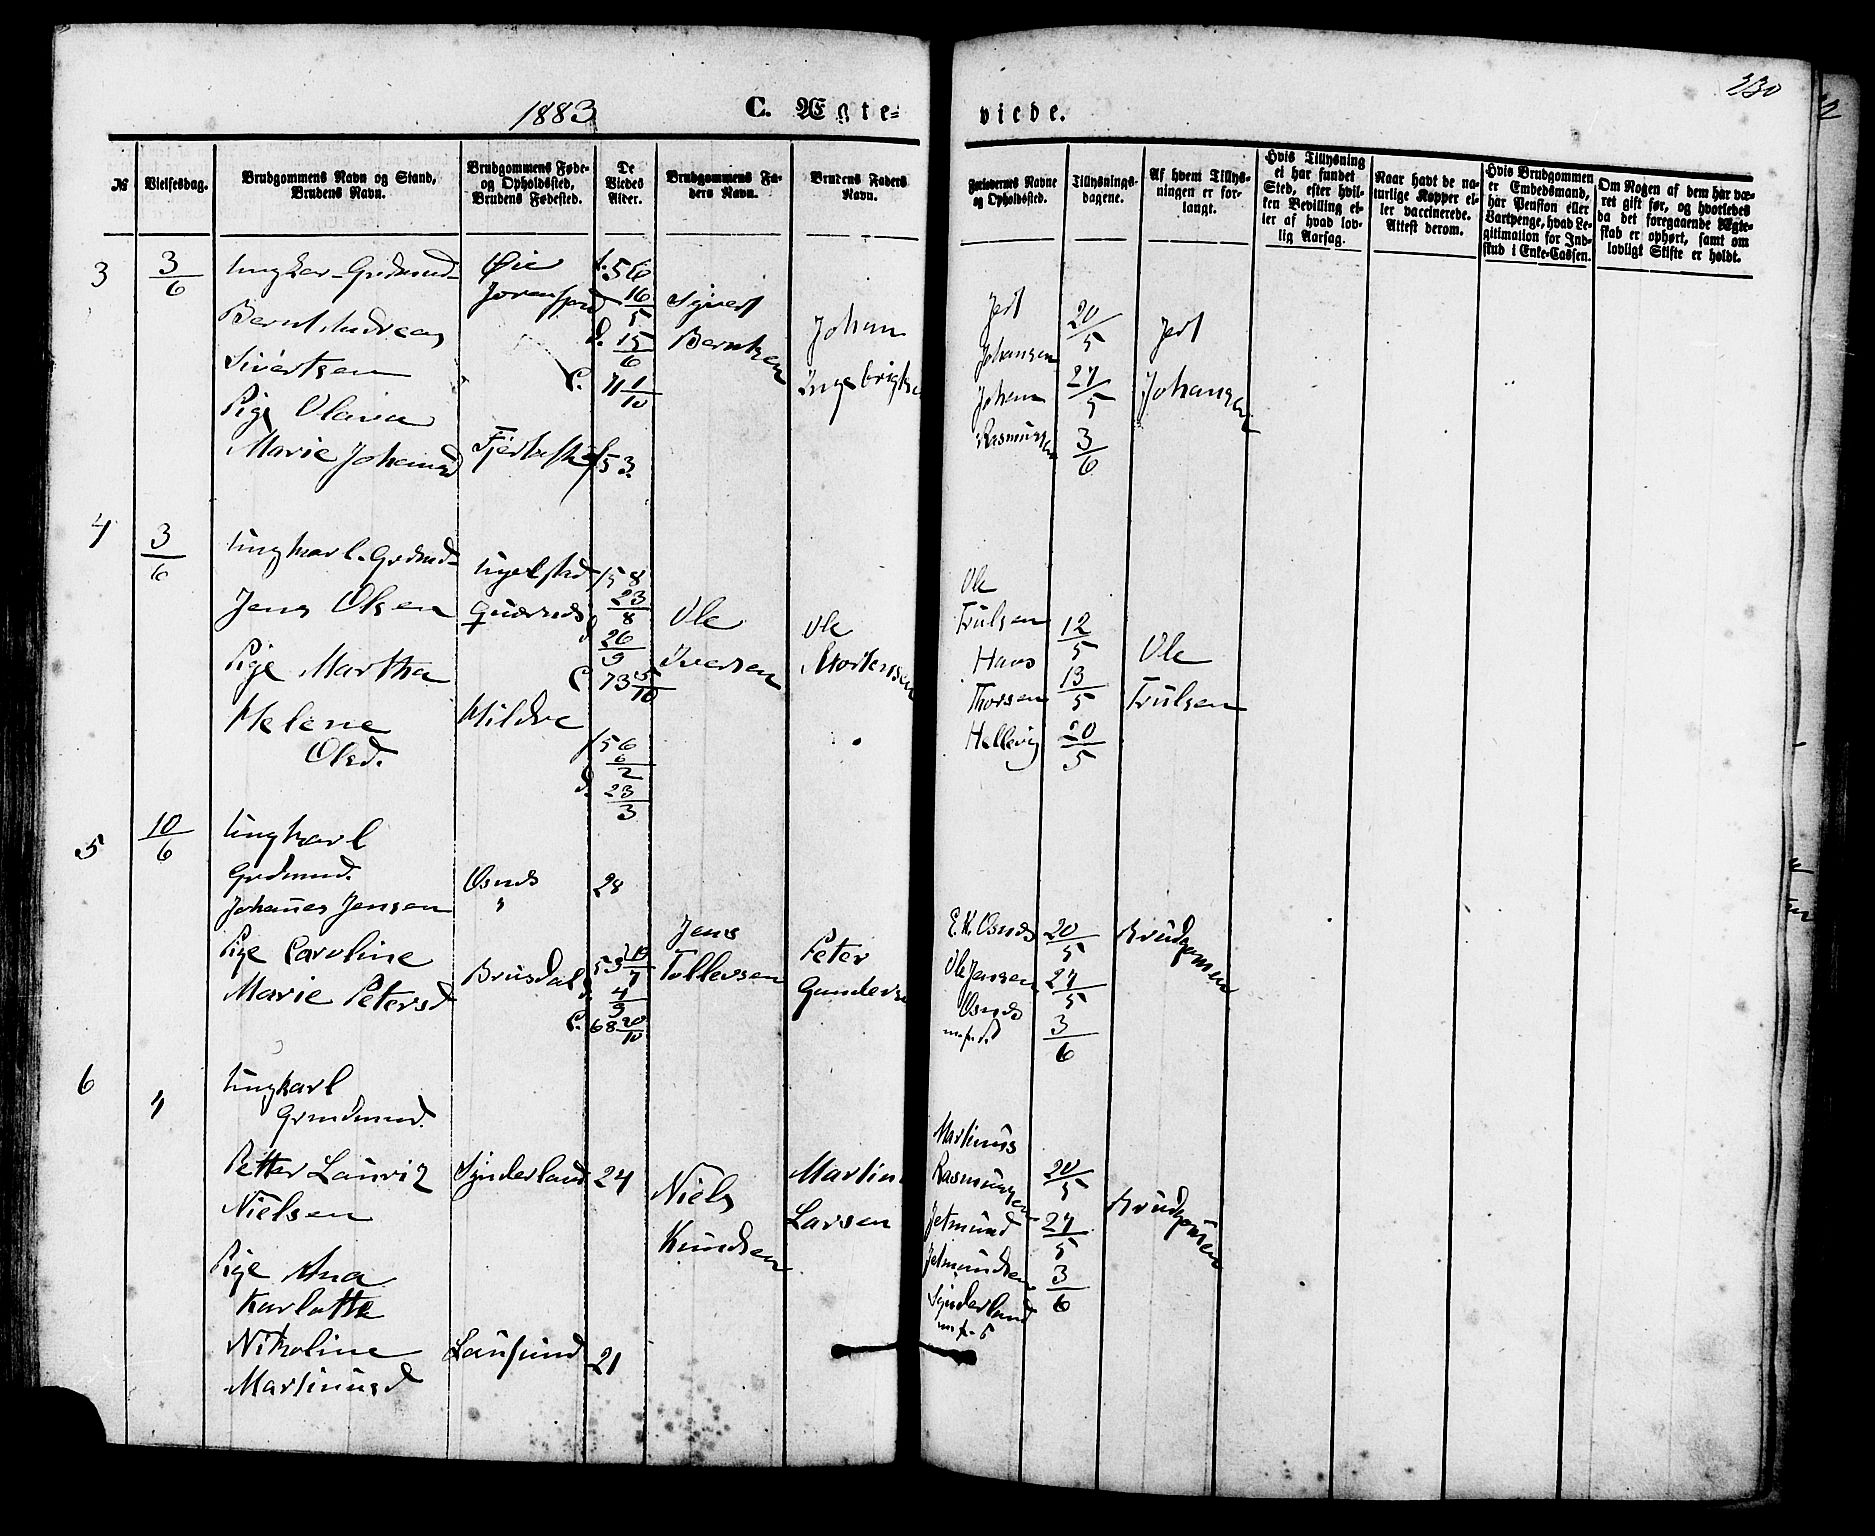 230
1883
C. Ægte-
viede.
№
Vielsesdag.
Brudgommens Navn og Stand,
Brudens Navn.
Brudgommens Føde-
og Opholdssted,
Brudens Fødested.
De
Viedes
Alder.
Brudgommens Fa-
ders Navn.
Brudens Faders
Navn.
Forlovernes Navne
og Opholdssted.
Tillysnings-
dagene.
Af hvem Tillys-
ningen er for-
langt.
Hvis Tillysning
ei har fundet
Sted, efter hvil-
ken Bevilling el-
ler af hvad lov-
lig Aarsag.
Naar havt de na-
turlige Kopper el-
ler vaccinerede.
Attest derom.
Hvis Brudgommen
er Embedsmand,
har Pension eller
Vartpenge, hvad Le-
gitimation for Ind-
stud i Enke-Cassen.
Om Nogen af dem har væ-
ret gift før, og hvorledes
da det foregaaende Ægte-
skab er ophørt, samt om
lovligt Skifte er holdt.
3
3/6
Ungkar. Grdmnd
Bernt Andreas
Sivertsen
Pige Olava
Marie Johansd
Øie
Fjørtoft
f. 56
16/5
d. 15/6
C. 71 1/10
f 53.
Sjvert
Berntsen
Johan
Ingebrigtse
Jert
Johansen
Johan
Rasmussen
20/5
27/5
3/6
Jert
Johansen
4
3/6
Ungkarl. Grdmd
Jens Olsen
Pige Martha
Helene
Olsd.
Hildre
f 58
23/8
d 26/9
C. 73 5/10
f 56
6/2
d. 23/3
Ole
Iversen
Ole
Mortensen
Ole
Trulsen
Hans
Thorsen
Hellevig
12/5
13/5
20/5
Ole
Trulsen
5
10/6
Ungkarl
Grdmnd.
Johannes Jensen
Pige Caroline
Marie Petersd
Osnes
"
Brusdal
28
53 /7
d. 4/9
C. 68 20/10
Jens
Tollevsen
Peter
Gunderse
E. K. Osnes
Ole Jensen
Osnes
20/5
27/5
3/6
Brudgomen
6
"
Ungkarl
Grundmnd.
Petter Lauriz
Nielsen
Pige Ana
Karlotte
Nikoline
Martinusd
Synderland
Longsund
24
21
Niels
Knudsen
Martin
Larsen
Martinus
Rasmussen
Jetmund
Jetmundsen
Synderland
20/5
27/5
3/6
Brudgomen